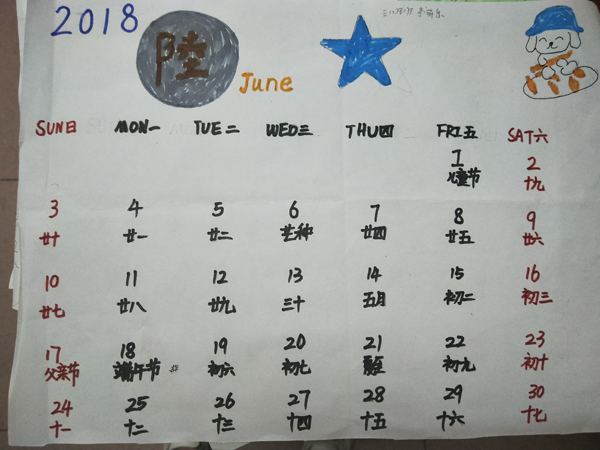 2018
陸
June
SUN日 MON一 TUE二 WED三 THU四 FRI五 SAT六
1 2
儿童节 十九
3 4 5 6 7 8 9
廿十 廿一 廿二 芒种 廿四 廿五 廿六
10 11 12 13 14 15 16
廿七 廿八 廿九 三十 五月 初二 初三
17 18 19 20 21 22 23
父亲节 端午节 初六 初七 夏至 初九 初十
24 25 26 27 28 29 30
十一 十二 十三 十四 十五 十六 十七